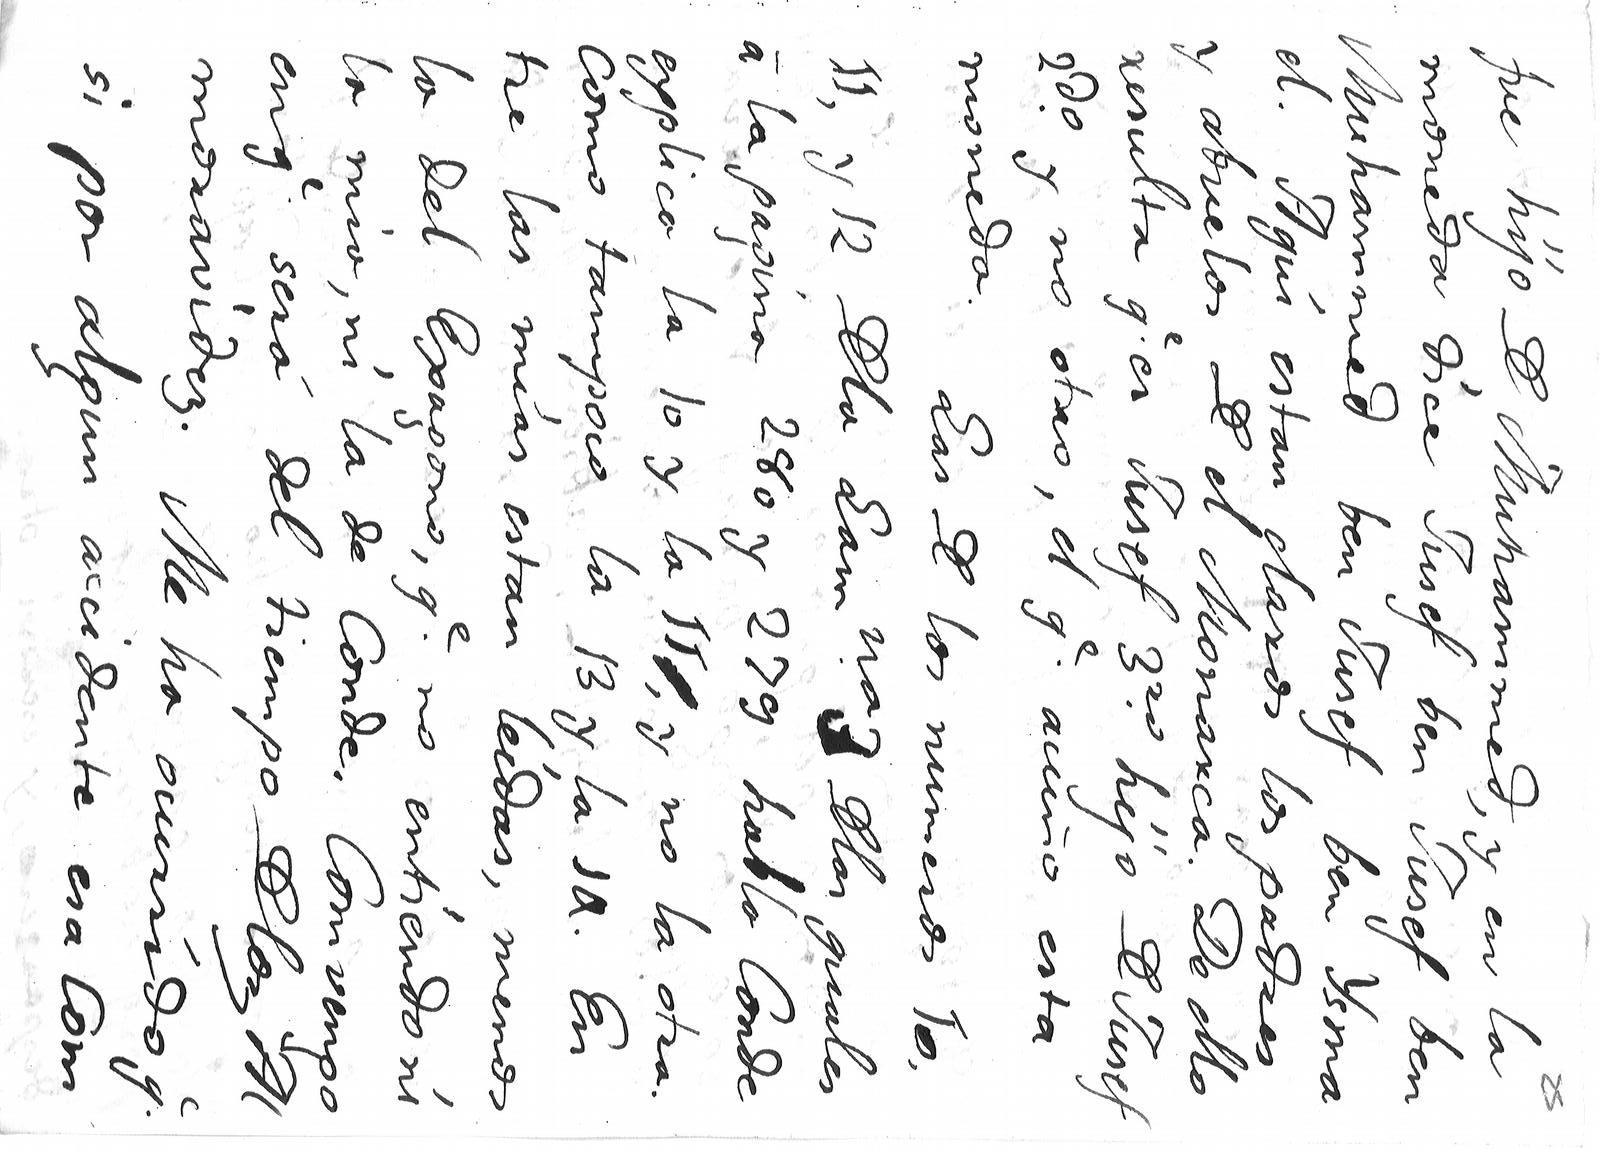 25
fue hijo D Muhammed, y en la
moneda dice Jusef ben Jusef ben
Muhammed ben Jusef ben Isma
el. Aqui estan claros los padres
y abuelos D el Monarca. De ello
resulta q.e es Jusef 3ro hijo D Jusef
2do y no otro, el q.e acuño esta
moneda.
Las D los numeros 10,
11, y 12 Dla Lam na Dlas quales
a la pagina 280 y 279 habla Conde
explica la 10 y la 11, y no la otra.
Como tampoco la 13 y la 14. En
tre las mias estan leidas, menos
la del Exagono, q.e no entiendo ni
la mia, ni la de Conde. Convengo
en q.e será del tiempo Dlos Al
moravides. Me ha ocurrido q.e
si por algun accidente esa Com